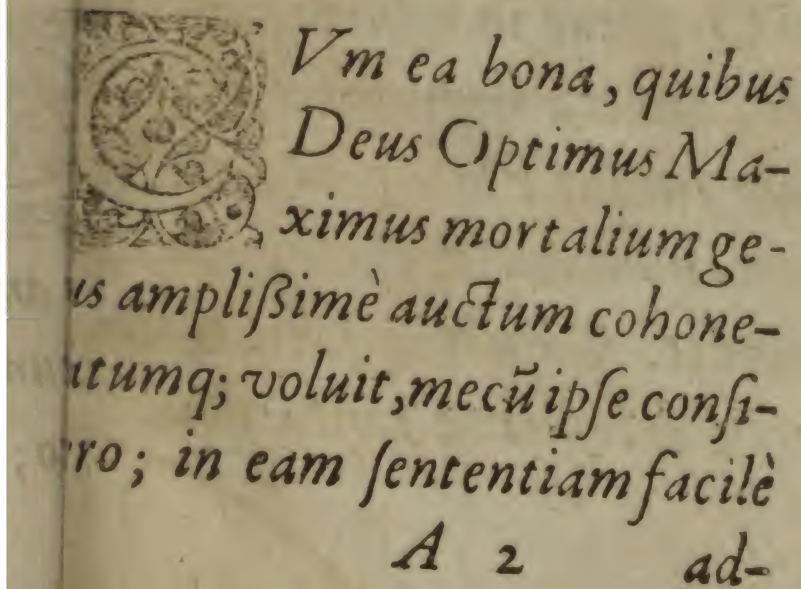 CVm ea bona, quibus
Deus Optimus Ma-
ximus mortalium ge-
us ampliſsimè auctum cohone-
tumq; voluit, mecũ ipſe conſi-
ro; in eam ſententiam facilè
A 2 ad-